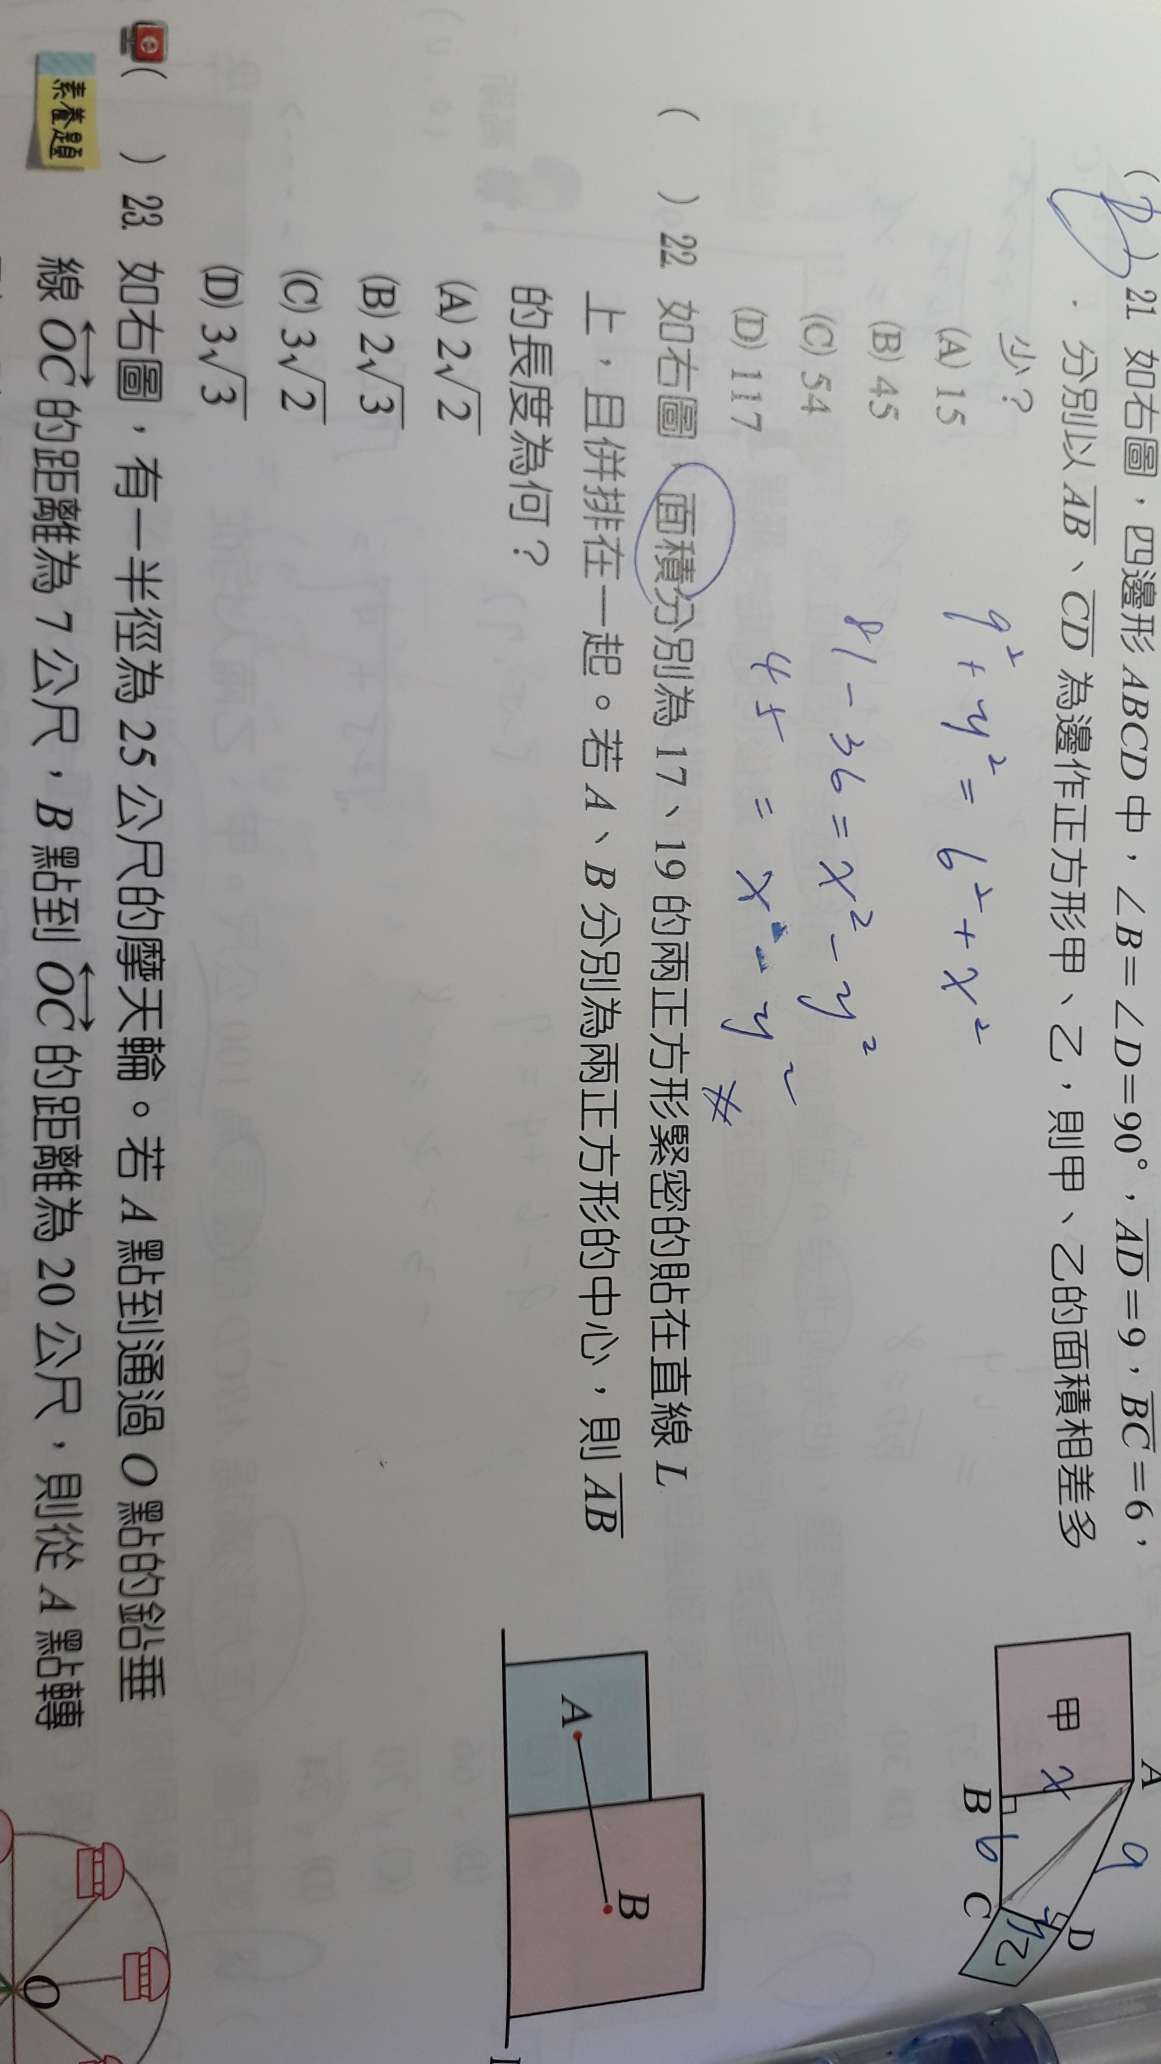 (B)21. 如右圖，四邊形 ABCD 中，∠B=∠D=90°，AD=9，BC=6，
分別以 AB、CD 為邊作正方形甲、乙，則甲、乙的面積相差多
少？
(A) 15
(B) 45
(C) 54
(D) 117
9²+y²=6²+x²
81-36=x²-y²
45=x²-y²
A
甲
x
9
B
6
C
y
D
乙
( )22. 如右圖，面積分別為 17、19 的兩正方形緊密的貼在直線 L
上，且併排在一起。若 A、B 分別為兩正方形的中心，則 AB
的長度為何？
(A) 2√2
(B) 2√3
(C) 3√2
(D) 3√3
A
B
e
( )23. 如右圖，有一半徑為 25 公尺的摩天輪。若 A 點到通過 O 點的鉛垂
素養題
線 OC 的距離為 7 公尺，B 點到 OC 的距離為 20 公尺，則從 A 點轉
O